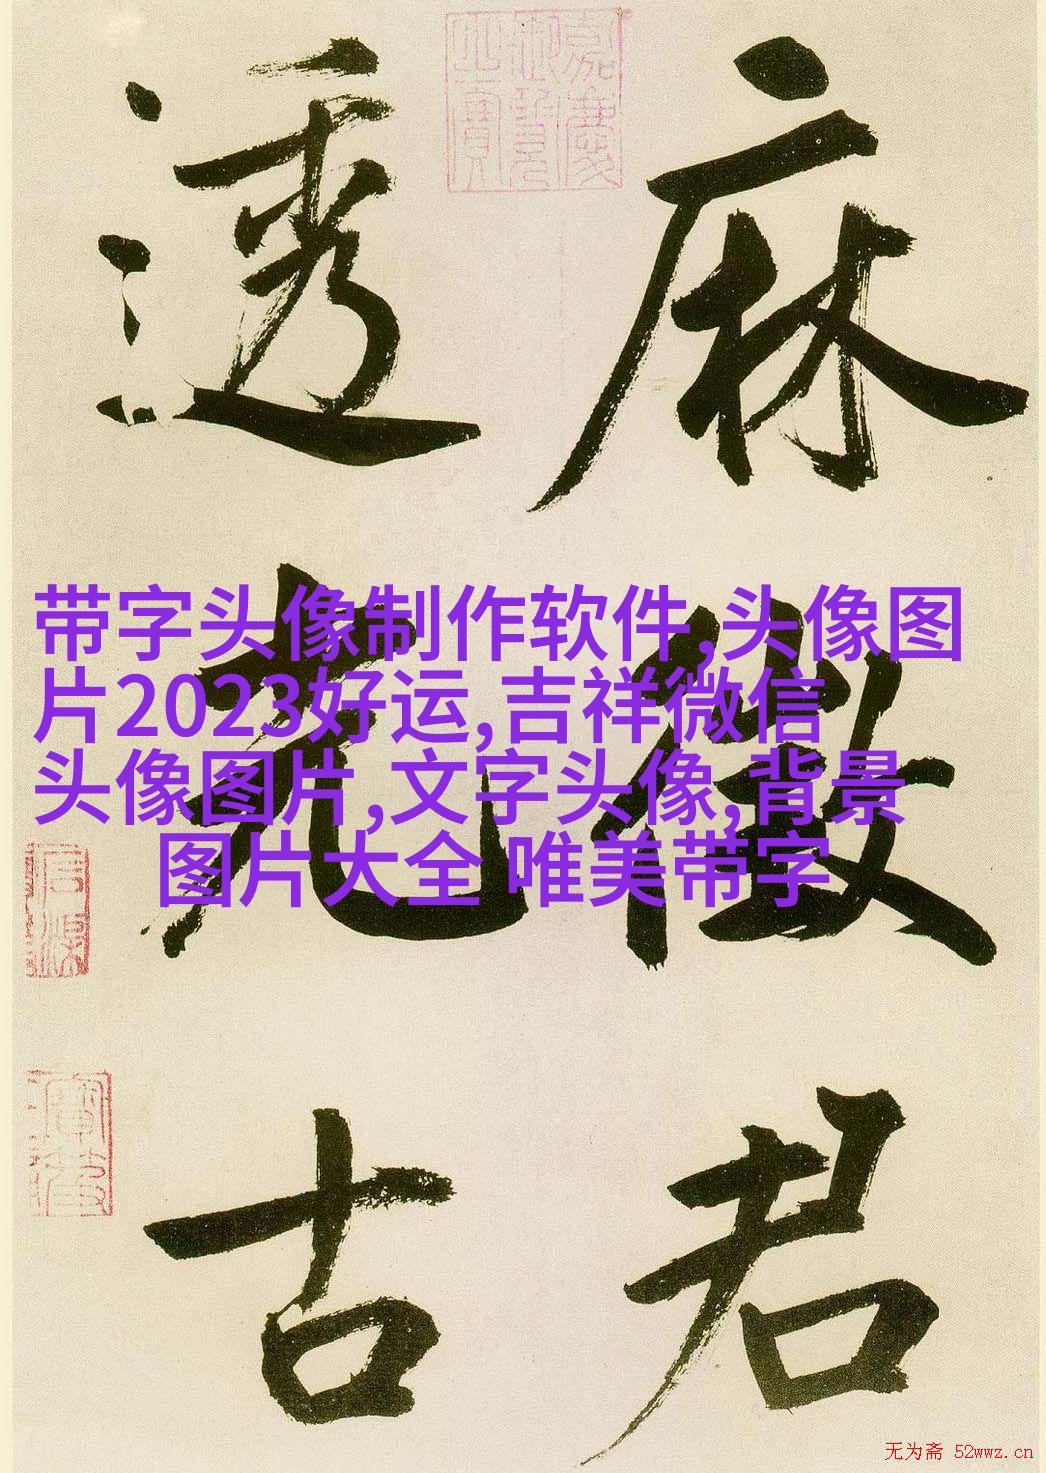 麻徵君
透光古
嘉慶
御覽
之寶
带字头像制作软件,头像图
片2023好运,吉祥微信
头像图片,文字头像,背景
图片大全 唯美带字
无为斋 52wwz.cn